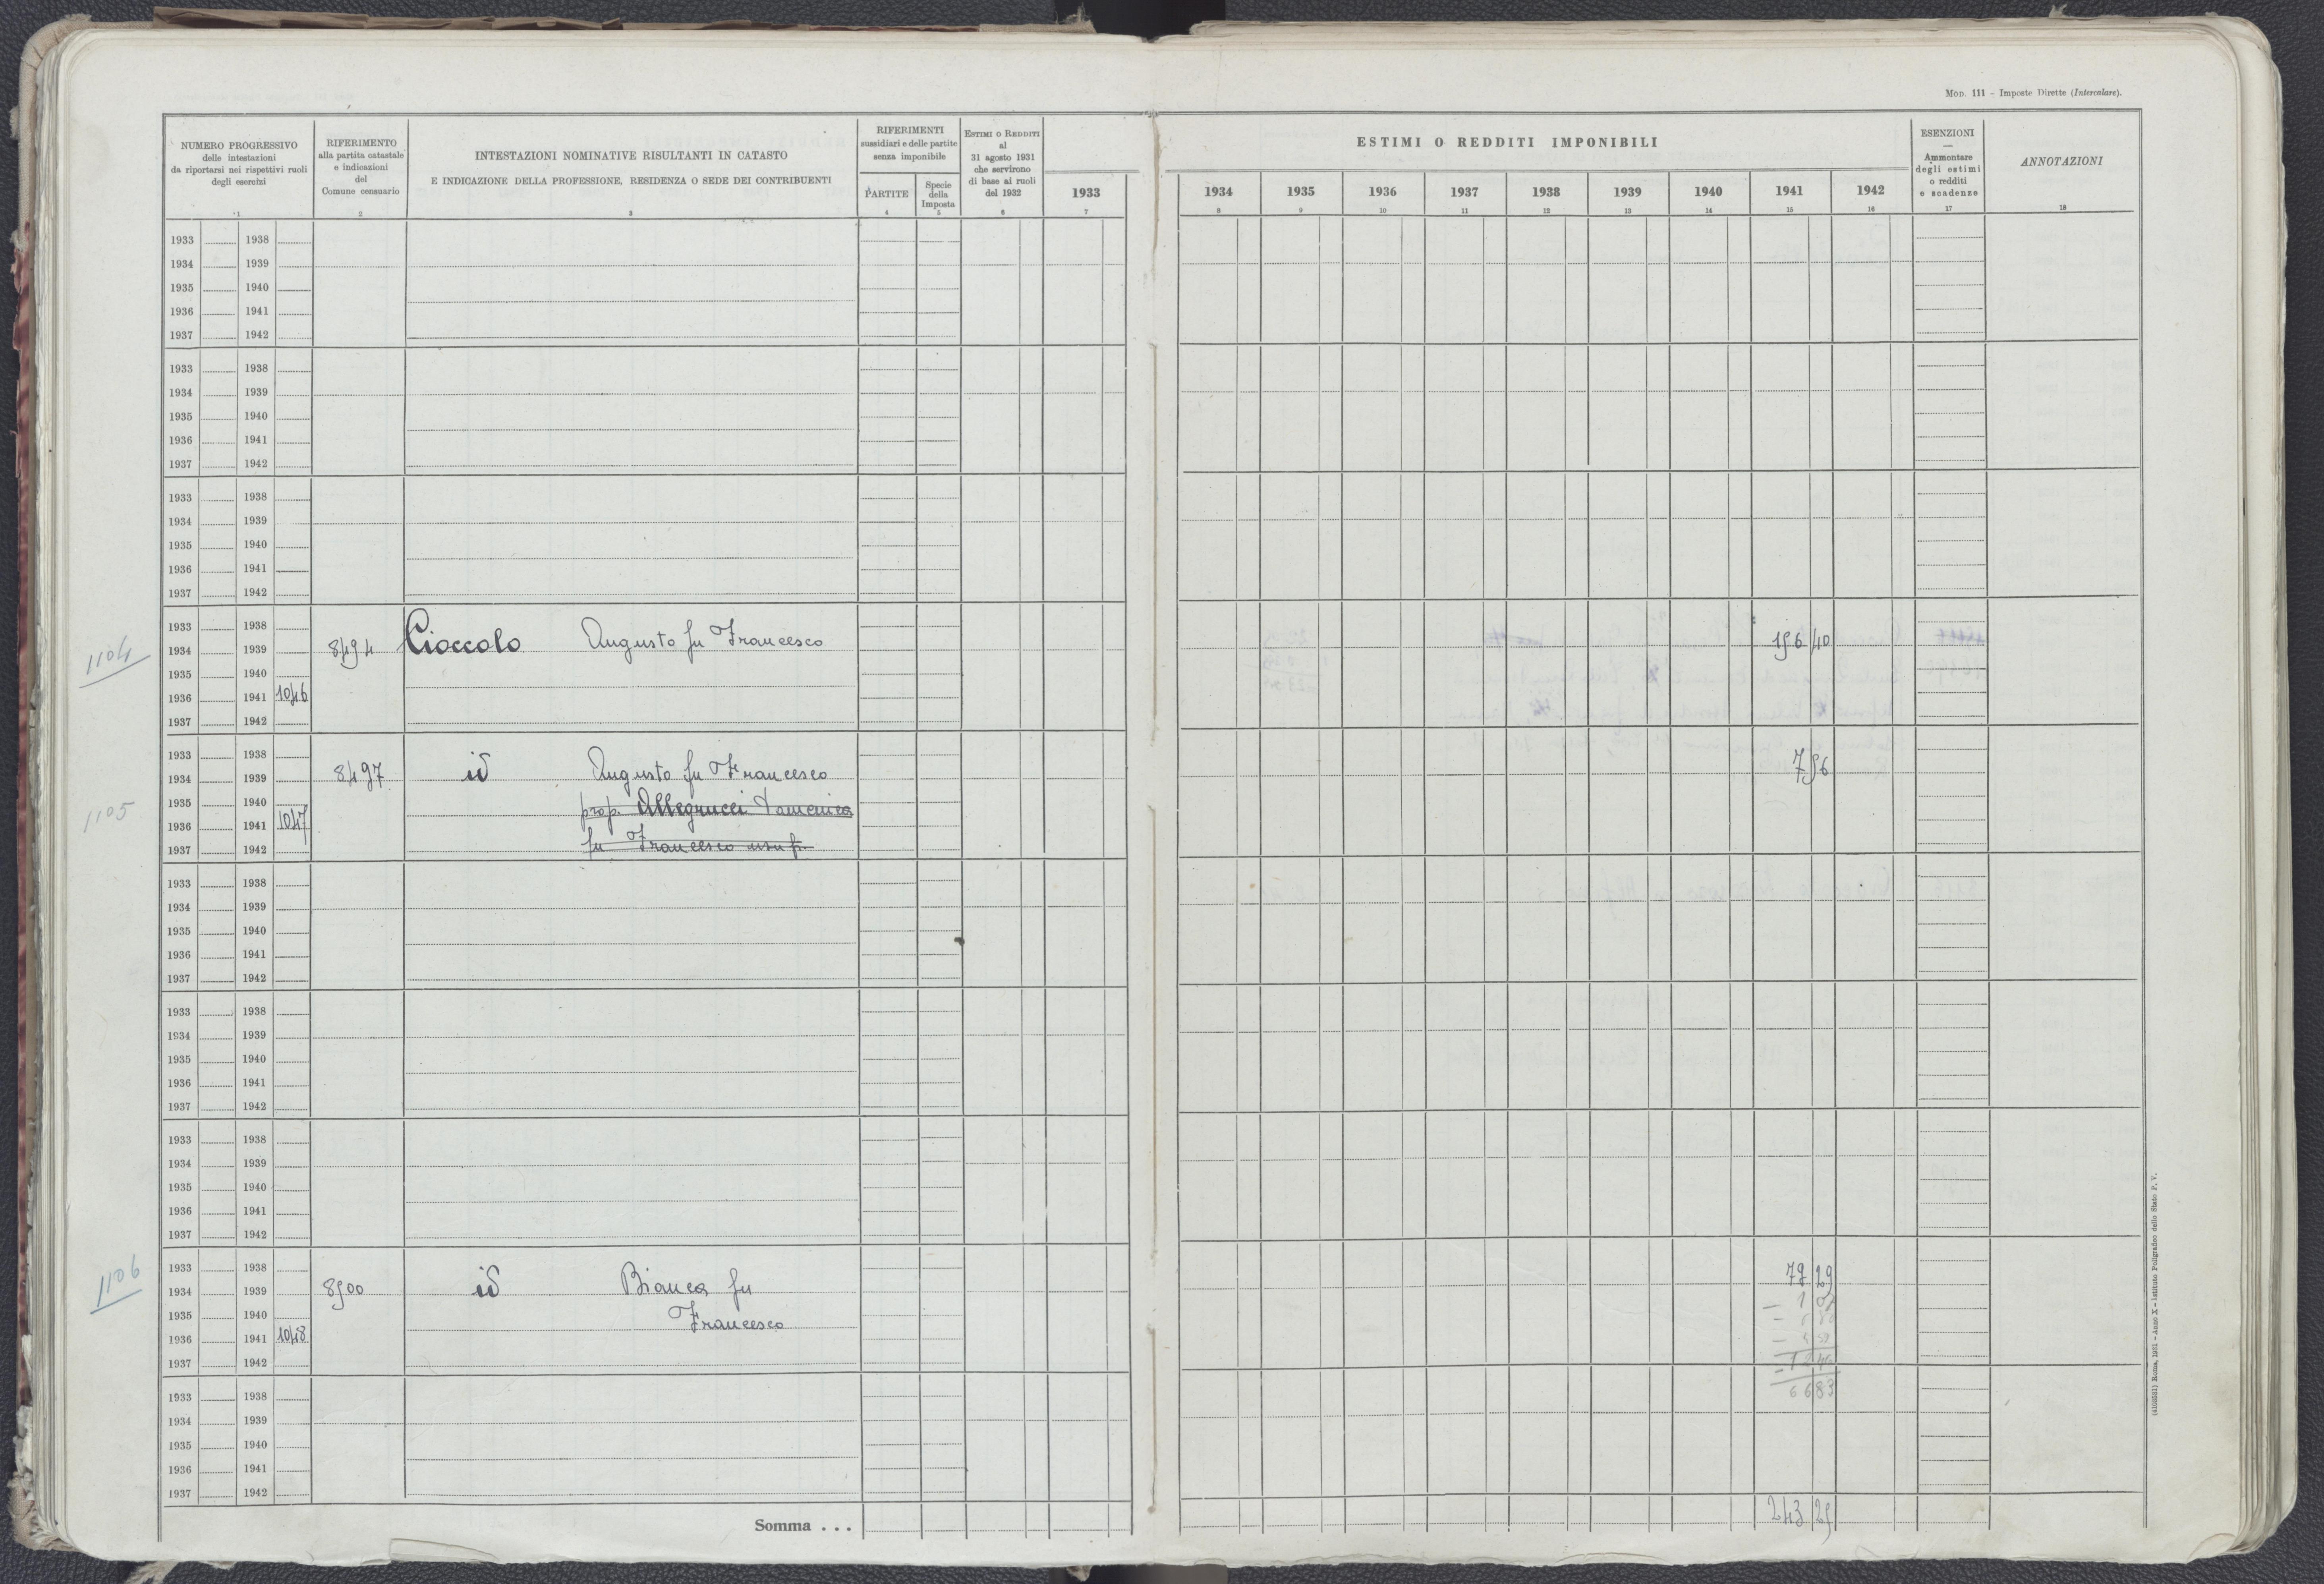 Mod. 111 - Imposte Dirette (Intercalare).
NUMERO PROGRESSIVO
delle intestazioni
da riportarsi nei rispettivi ruoli
degli esercizi
1
RIFERIMENTO
alla partita catastale
e indicazioni
del
Comune censuario
2
INTESTAZIONI NOMINATIVE RISULTANTI IN CATASTO
E INDICAZIONE DELLA PROFESSIONE, RESIDENZA O SEDE DEI CONTRIBUENTI
3
RIFERIMENTI
sussidiari e delle partite
senza imponibile
PARTITE
4
Specie
della
Imposta
5
ESTIMI O REDDITI
al
31 agosto 1931
che servirono
di base ai ruoli
del 1932
6
1933
7
ESTIMI O REDDITI IMPONIBILI
1934 1935 1936 1937 1938 1939 1940 1941 1942
8 9 10 11 12 13 14 15 16
ESENZIONI
—
Ammontare
degli estimi
o redditi
e scadenze
17
ANNOTAZIONI
18
1933 1938
1934 1939
1935 1940
1936 1941
1937 1942
1933 1938
1934 1939
1935 1940
1936 1941
1937 1942
1933 1938
1934 1939
1935 1940
1936 1941
1937 1942
1933 1938
1104 1934 1939 8494 Cioccolo Augusto fu Francesco 156 40
1935 1940
1936 1941 1046
1937 1942
1933 1938
1934 1939 8497 id Augusto fu Francesco 7 56
1105 1935 1940 prop. Allegrucci Domenica
1936 1941 1047
1937 1942 fu Francesco usufr.
1933 1938
1934 1939
1935 1940
1936 1941
1937 1942
1933 1938
1934 1939
1935 1940
1936 1941
1937 1942
1933 1938
1934 1939
1935 1940
1936 1941
1937 1942
1933 1938
1106 1934 1939 8500 id Bianca fu 79 29
1935 1940 Francesco
1936 1941 1048
1937 1942
1933 1938 66 83
1934 1939
1935 1940
1936 1941
1937 1942
Somma . . . 243 25
(4103561) Roma, 1931 - Anno X - Istituto Poligrafico dello Stato P. V.